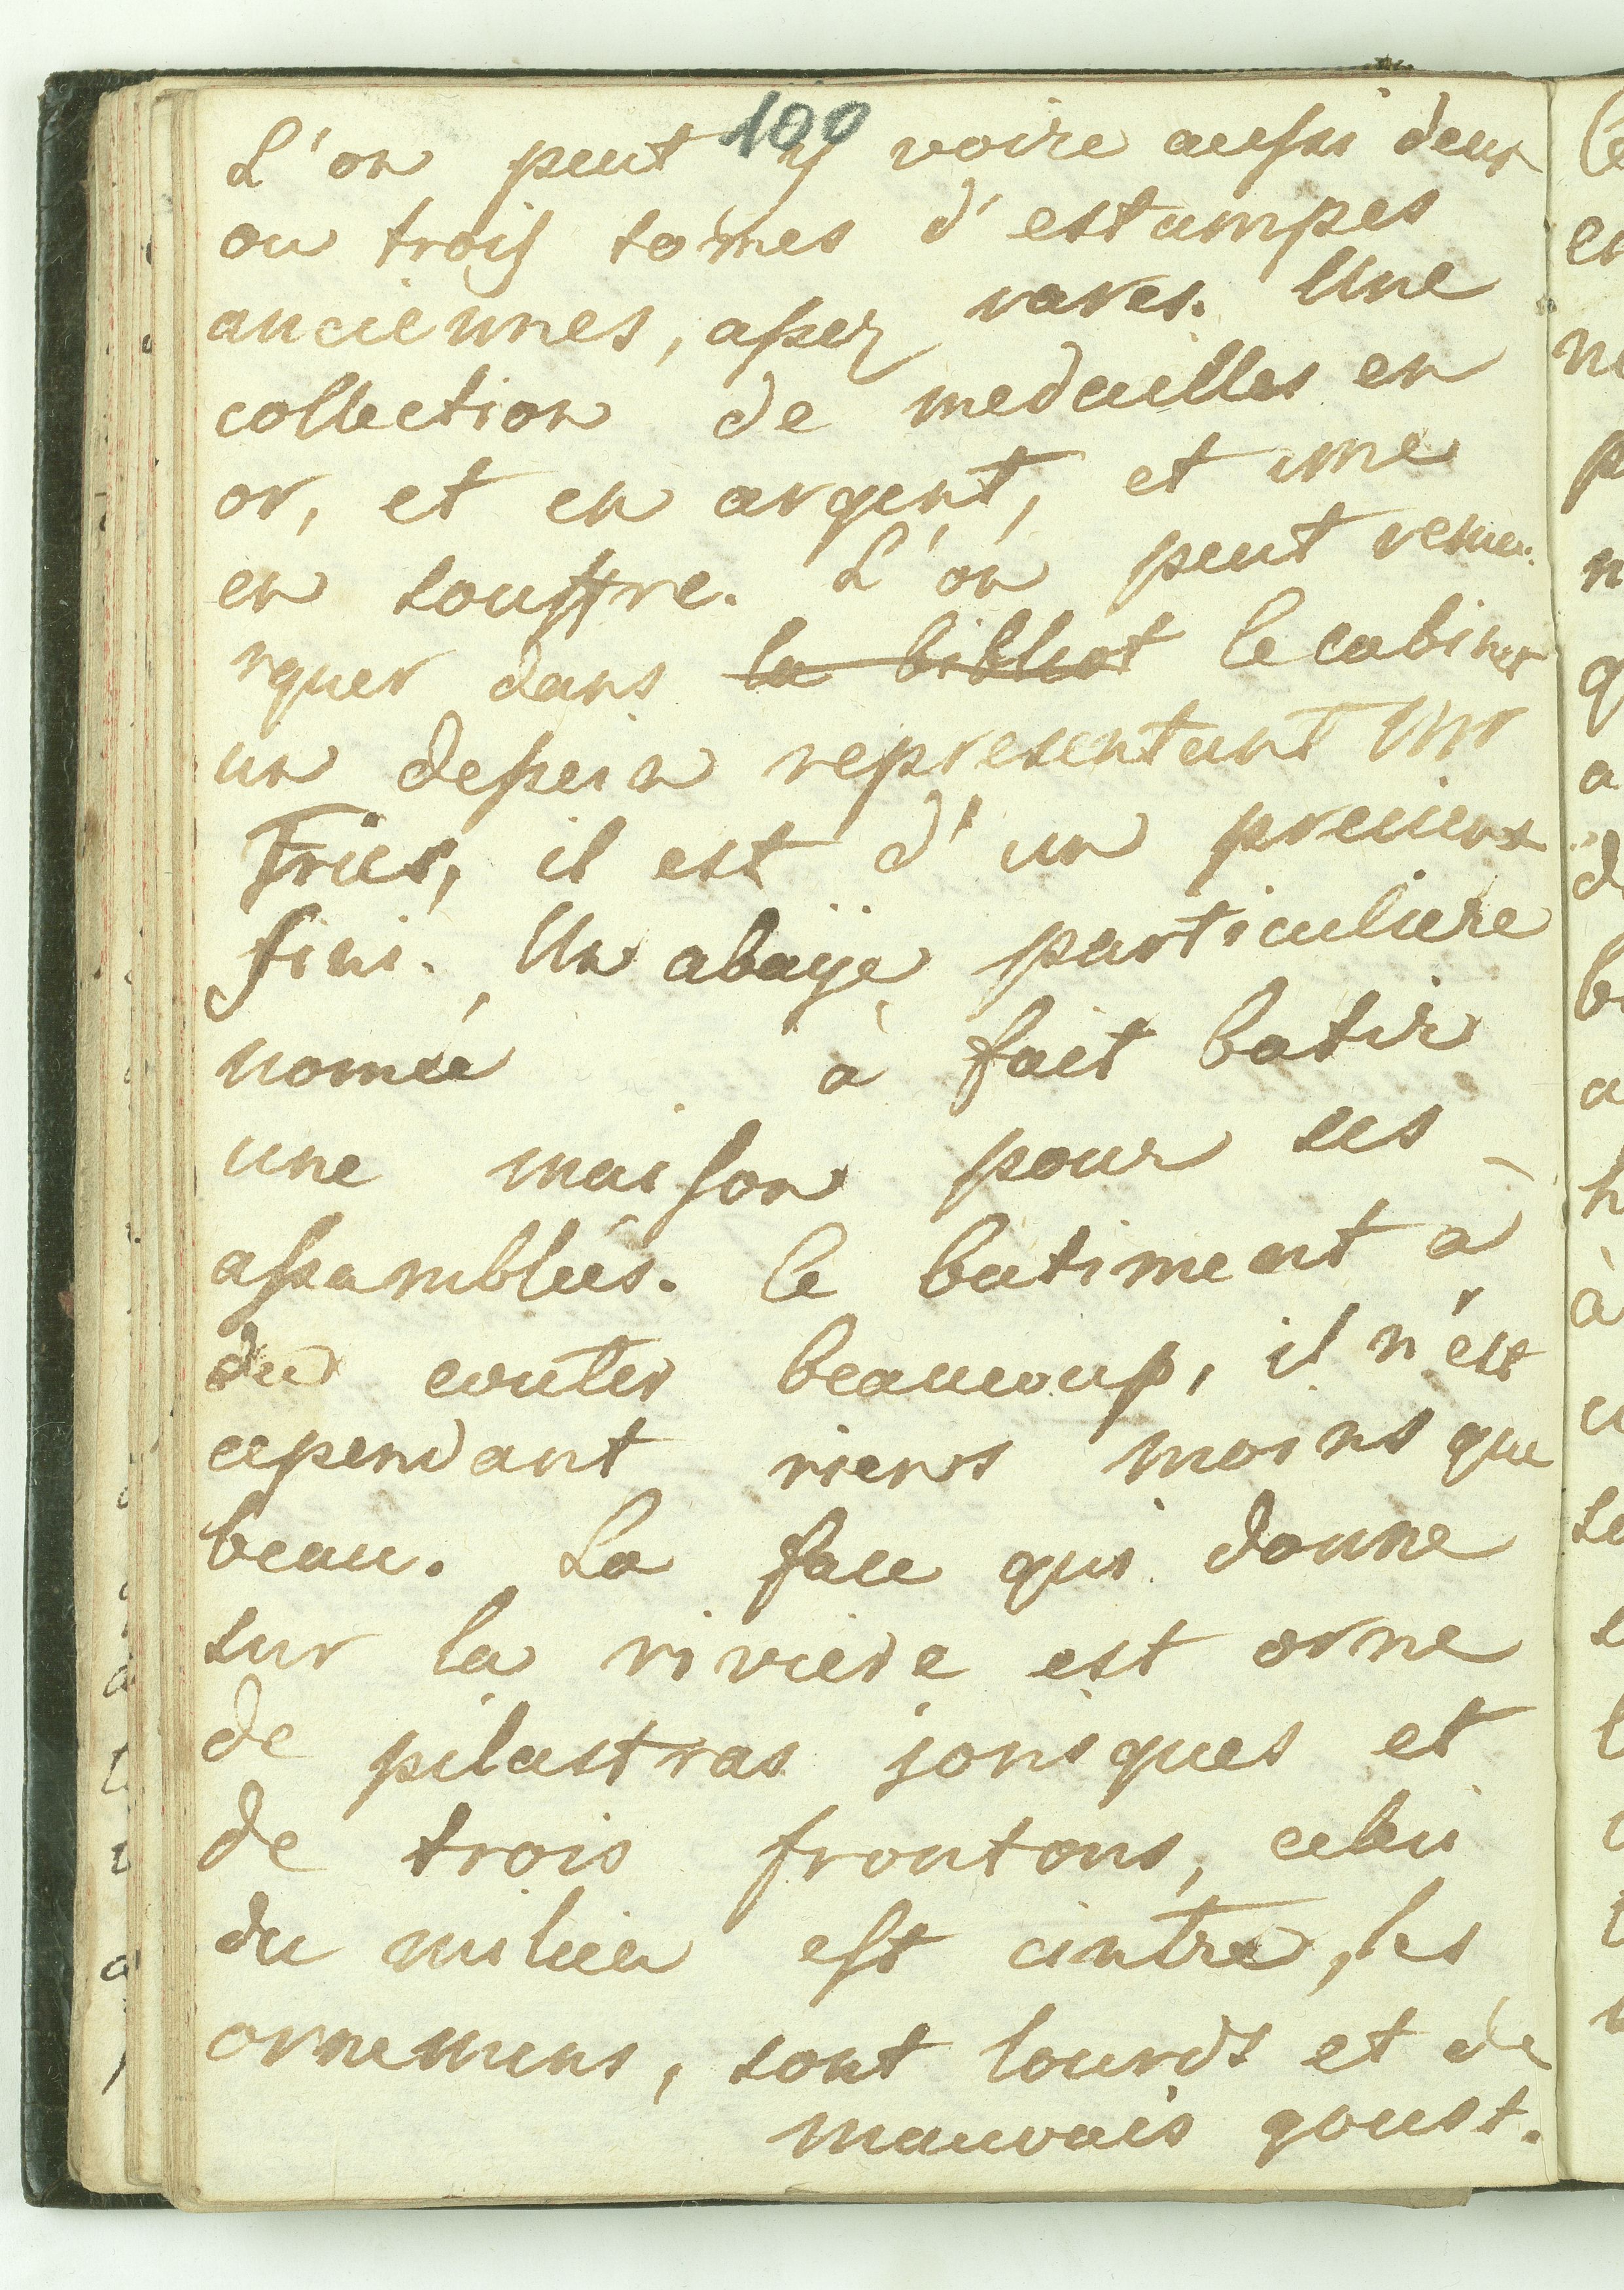 100
L'on peut y voire aussi deux
ou trois tomes d'estampes
anciennes, assez rares. Une
collection de medailles en
or, et en argent, et une
en souffre. L'on peut rema-
rquer dans la bibliot le cabinet
un dessein representant Mr
Fries, il est d'un precieux
fini. Un abaÿe particuliere
nomée à fait batir
une maison pour ses
assamblées. le batiment a
du couter beaucoup, il n'est
cependant riens moins que
beau. La face qui donne
sur la riviere est orne
de pilastras joniques et
de trois frontons, celui
du milieu est cintre, les
ornemens, sont lourds et de
mauvais goust.